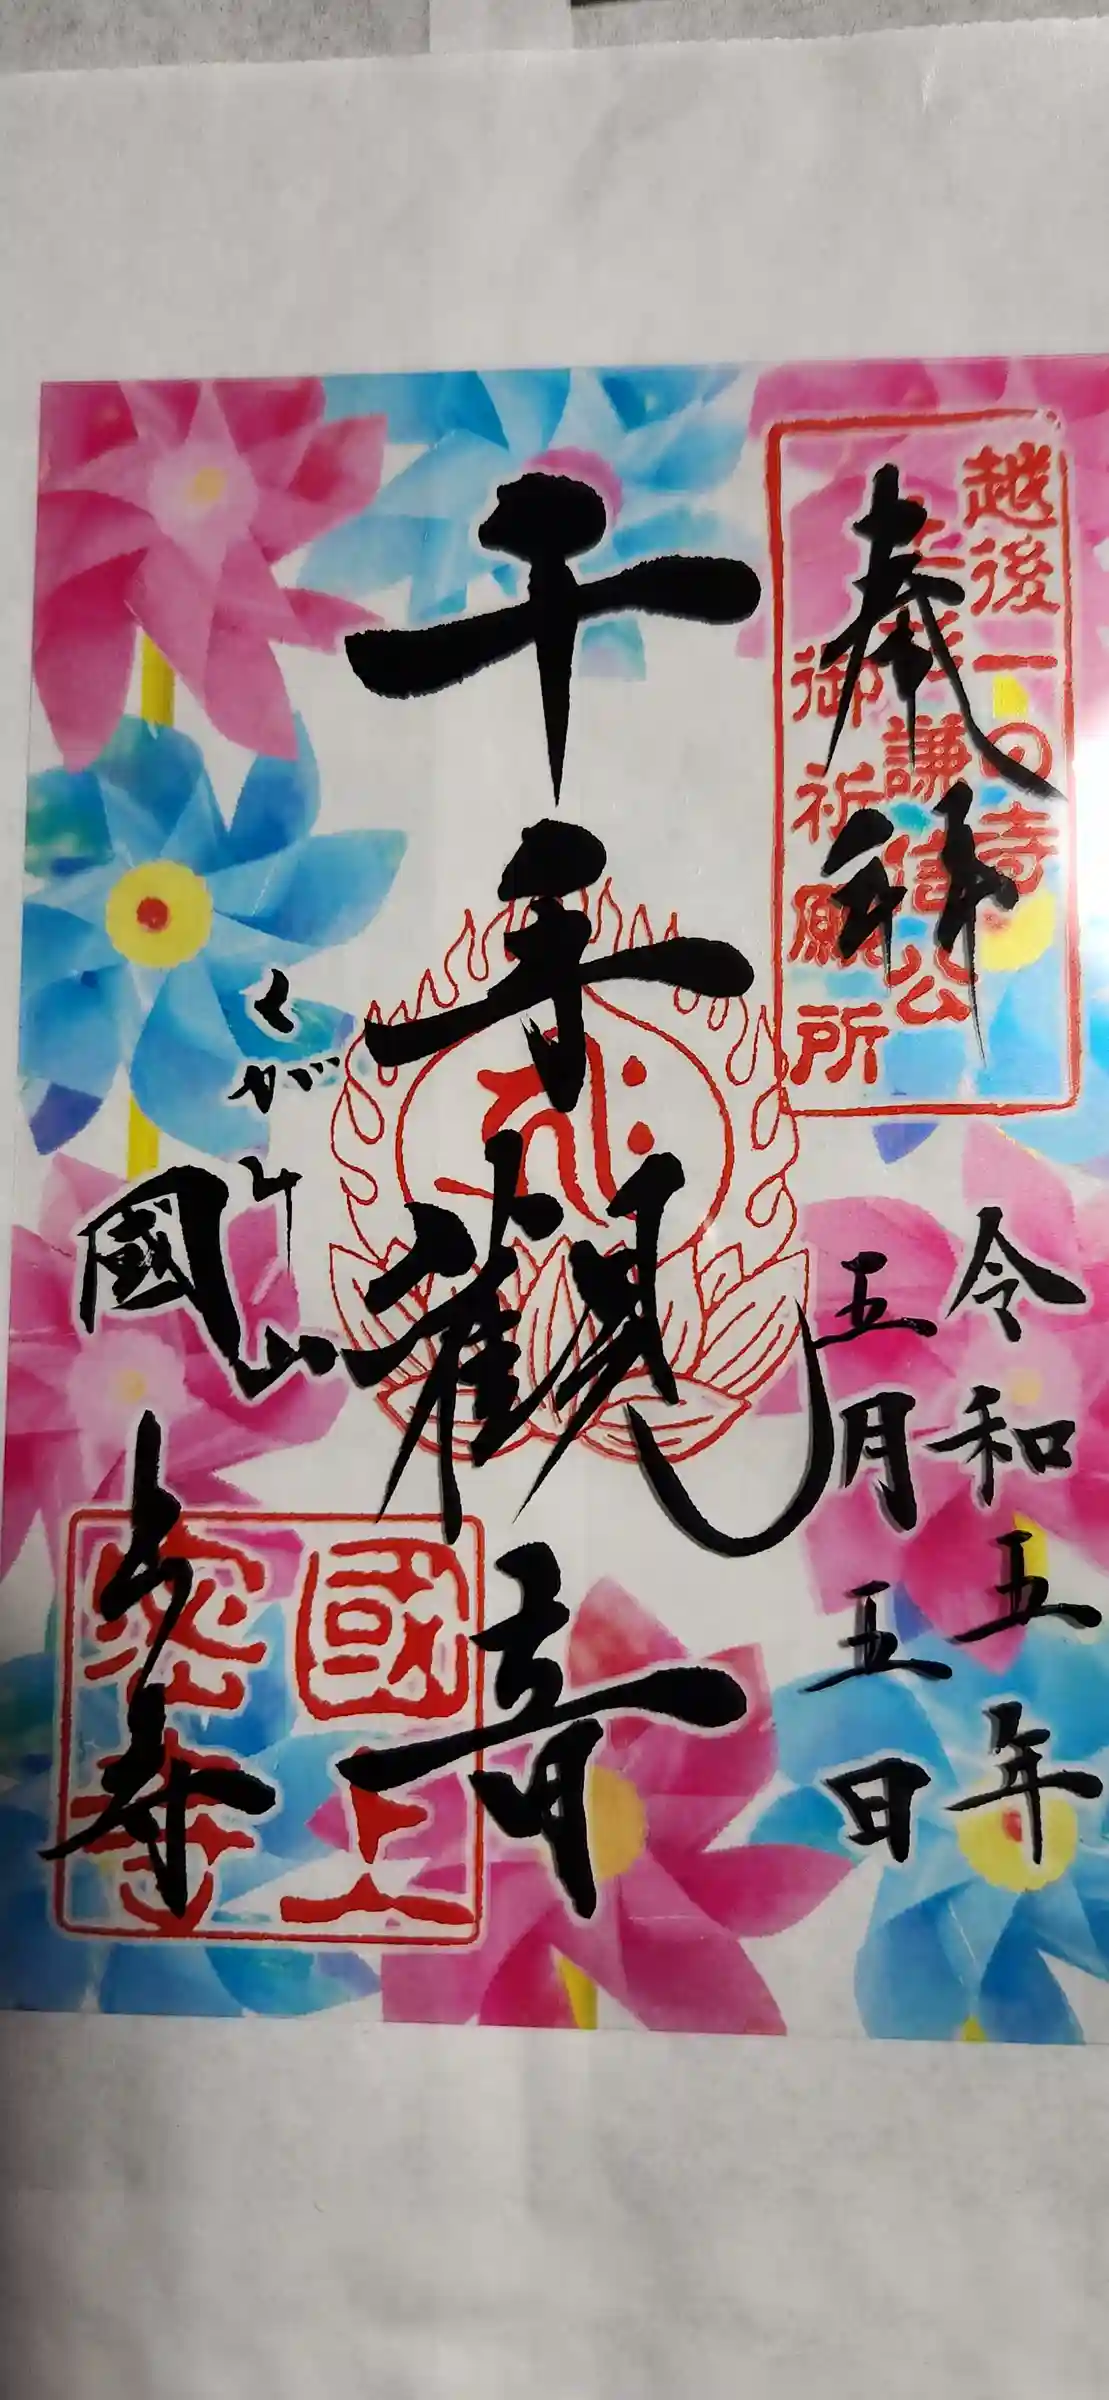 越後一の寺
上杉謙信公
御祈願所
奉拝
令和五年
五月五日
千手観音
くがみ山
國上寺
國上
寺